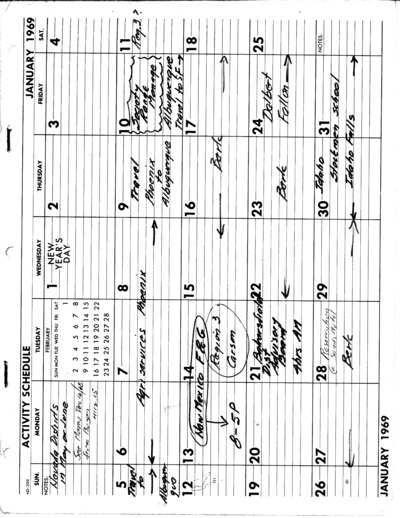 ACTIVITY SCHEDULE
JANUARY 1969
SUN.
MONDAY
TUESDAY
WEDNESDAY
THURSDAY
FRIDAY
SAT.
NOTES:
Nevada Districts
in May or June
FEBRUARY
SUN MON TUE WED THU FRI SAT
1
2 3 4 5 6 7 8
9 10 11 12 13 14 15
16 17 18 19 20 21 22
23 24 25 26 27 28
1 NEW
YEAR'S
DAY
2
3
4
5
Travel
to
6
7
Agri services Phoenix
8
9
Travel
Phoenix
to
Albuquerque
10
Albuquerque
Travel to S.F.
11
Reg. 3?
12
13
8-5P
14
New Mexico F&G
Region 3
Carson
15
16
Berk
17
18
19
20
21
Advisory
Board
22
23
Berk
24
Delbert
Fallon
25
26
27
28
Reservation
Berk
29
30
Idaho
Stockmen School
Idaho Falls
31
NOTES:
JANUARY 1969